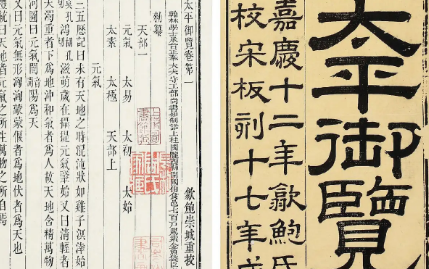 太平御覽
嘉慶十二年歙鮑氏
校宋板刻十七年成
太平御覽卷第一
歙鮑崇城重校
翰林學士承旨正奉大夫守工部尚書知制誥上柱國隴西縣開國伯食邑七百戶賜紫金魚袋臣
勅纂
天部一
元氣 太易 太初 太始
太素 太極 天部上
元氣
三五歷記曰未有天地之時混沌狀如雞子溟涬始
鴻滋萌歲在攝提元氣肇始又曰清輕者
天濁重者下為地沖和氣者為人故天地含精萬物
河圖曰元氣闓陽為天
又曰元氣無形洶洶蒙蒙偃者為地伏者為天也
禮統曰天地者元氣之所生萬物之所自焉